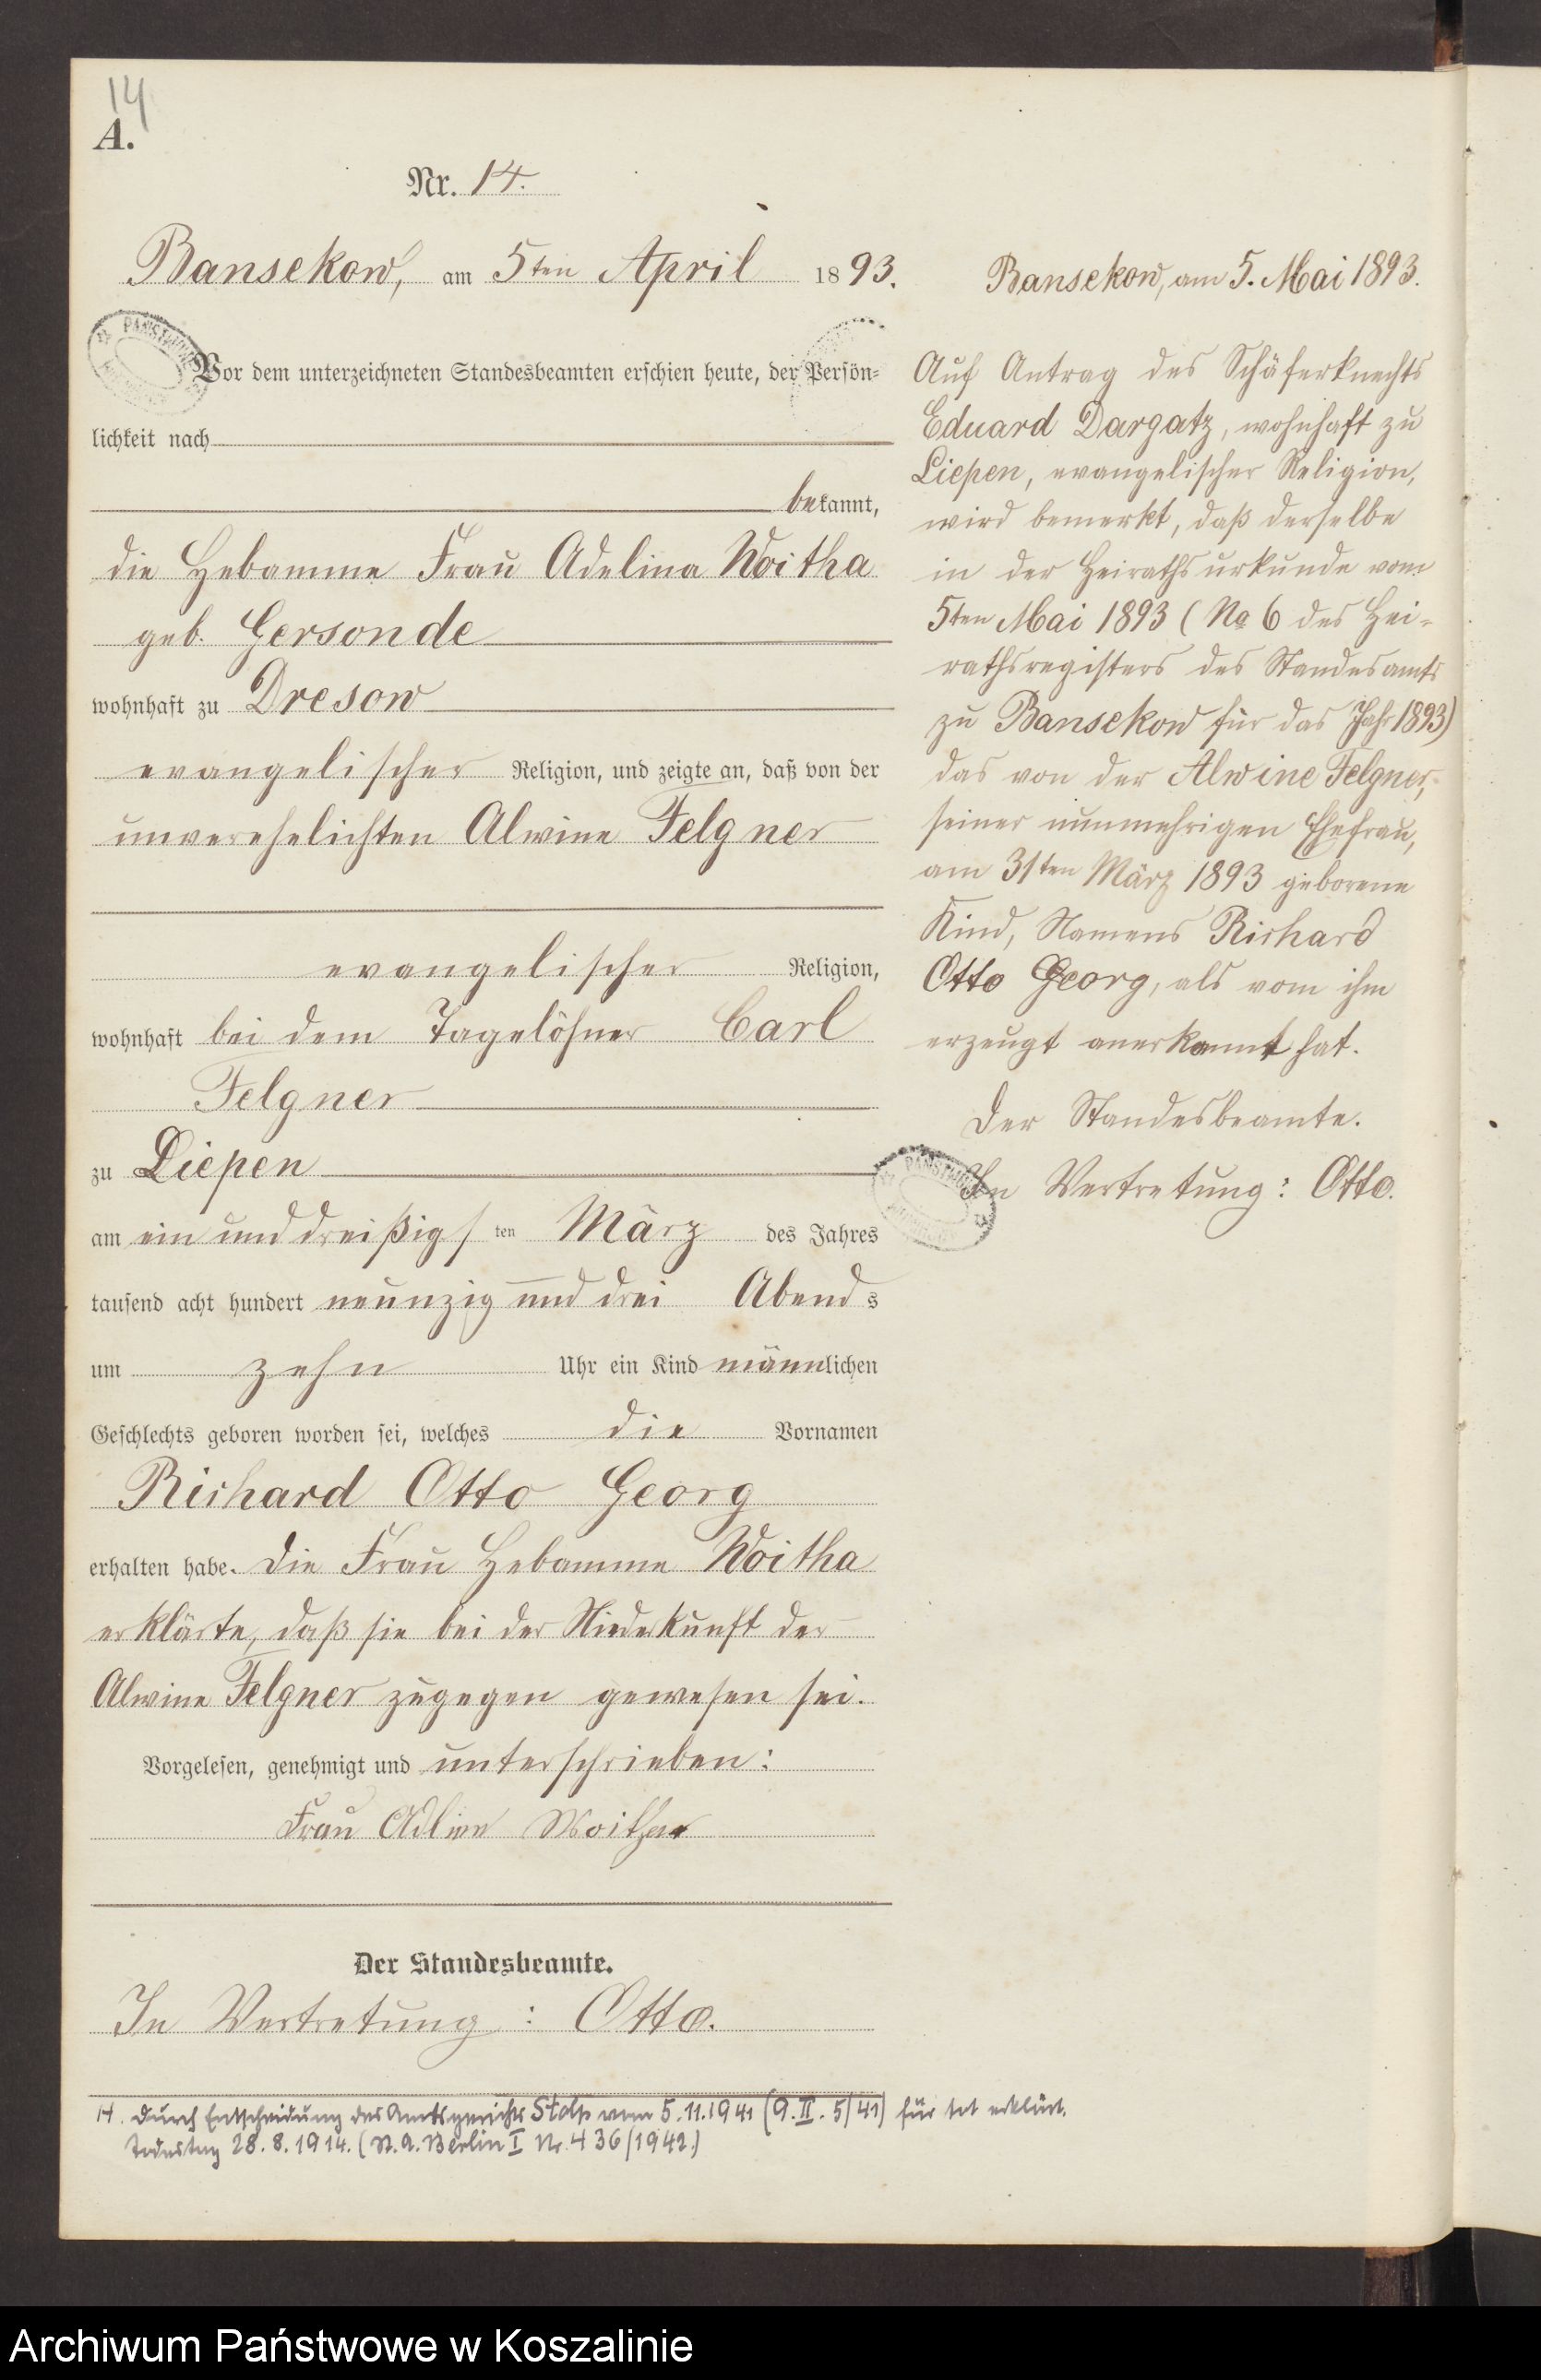 14
A.
Nr. 14.
Bansekow, am 5ten April 1893.
Vor dem unterzeichneten Standesbeamten erschien heute, der Persön-
lichkeit nach
bekannt,
die Hebamme Frau Adelina Woitha
geb. Gersonde
wohnhaft zu Dresow
evangelischer Religion, und zeigte an, daß von der
unverehelichten Alwine Felgner
evangelischer Religion,
wohnhaft bei dem Tagelöhner Carl
Felgner
zu Liepen
am ein und dreißigsten März des Jahres
tausend acht hundert neunzig und drei Abends
um zehn Uhr ein Kind männlichen
Geschlechts geboren worden sei, welches die Vornamen
Richard Otto Georg
erhalten habe. Die Frau Hebamme Woitha
erklärte, daß sie bei der Niederkunft der
Alwine Felgner zugegen gewesen sei.
Vorgelesen, genehmigt und unterschrieben:
Frau Adline Woitha
Der Standesbeamte.
In Vertretung: Otto.
Bansekow, am 5. Mai 1893.
Auf Antrag des Schäferknechts
Eduard Dargatz, wohnhaft zu
Liepen, evangelischer Religion,
wird bemerkt, daß derselbe
in der Heirathsurkunde vom
5ten Mai 1893 (No 6 des Hei-
rathsregisters des Standesamts
zu Bansekow für das Jahr 1893)
das von der Alwine Felgner,
seiner nunmehrigen Ehefrau,
am 31ten März 1893 geborene
Kind, Namens Richard
Otto Georg, als vom ihm
erzeugt anerkannt hat.
Der Standesbeamte.
In Vertretung: Otto.
14. Durch Entscheidung des Amtsgerichts Stolp vom 5.11.1941 (9.II.5/41) für tot erklärt.
Todestag 28.8.1914. (St.A. Berlin I Nr. 436/1942.)
Archiwum Państwowe w Koszalinie